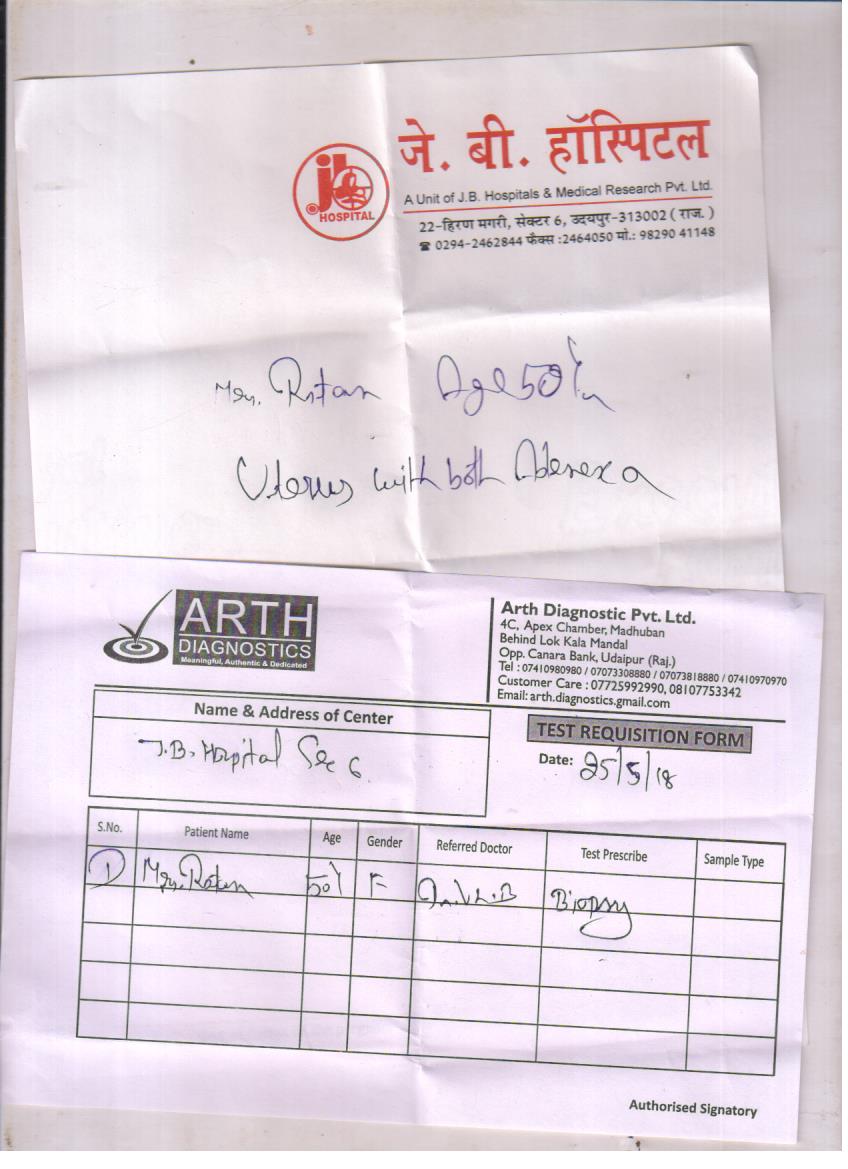 जे. बी. हॉस्पिटल
jb HOSPITAL
A Unit of J.B. Hospitals & Medical Research Pvt. Ltd.
22-हिरण मगरी, सेक्टर 6, उदयपुर-313002 ( राज. )
☎ 0294-2462844 फैक्स :2464050 मो.: 98290 41148
Mrs. Ratan Age 50Y
Uterus with both Adenexa
ARTH
DIAGNOSTICS
Meaningful, Authentic & Dedicated
Arth Diagnostic Pvt. Ltd.
4C, Apex Chamber, Madhuban
Behind Lok Kala Mandal
Opp. Canara Bank, Udaipur (Raj.)
Tel : 07410980980 / 07073308880 / 07073818880 / 07410970970
Customer Care : 07725992990, 08107753342
Email: arth.diagnostics.gmail.com
Name & Address of Center
J.B. Hospital Sec 6
TEST REQUISITION FORM
Date: 25/5/18
S.No. Patient Name Age Gender Referred Doctor Test Prescribe Sample Type
1 Mrs. Ratan 50Y F Dr. V.L.B Biopsy
Authorised Signatory